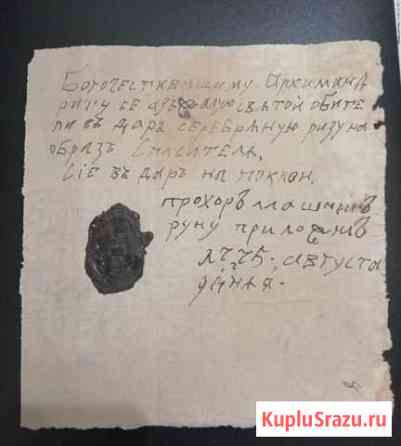 Богочестившому Архиманд
риту се святой обите
ли въ даръ серебряную ризу на
образъ Спасителя,
Сіе въ даръ на поклон.
прохоръ
руку приложивъ
августа
дня.
KupluSrazu.ru